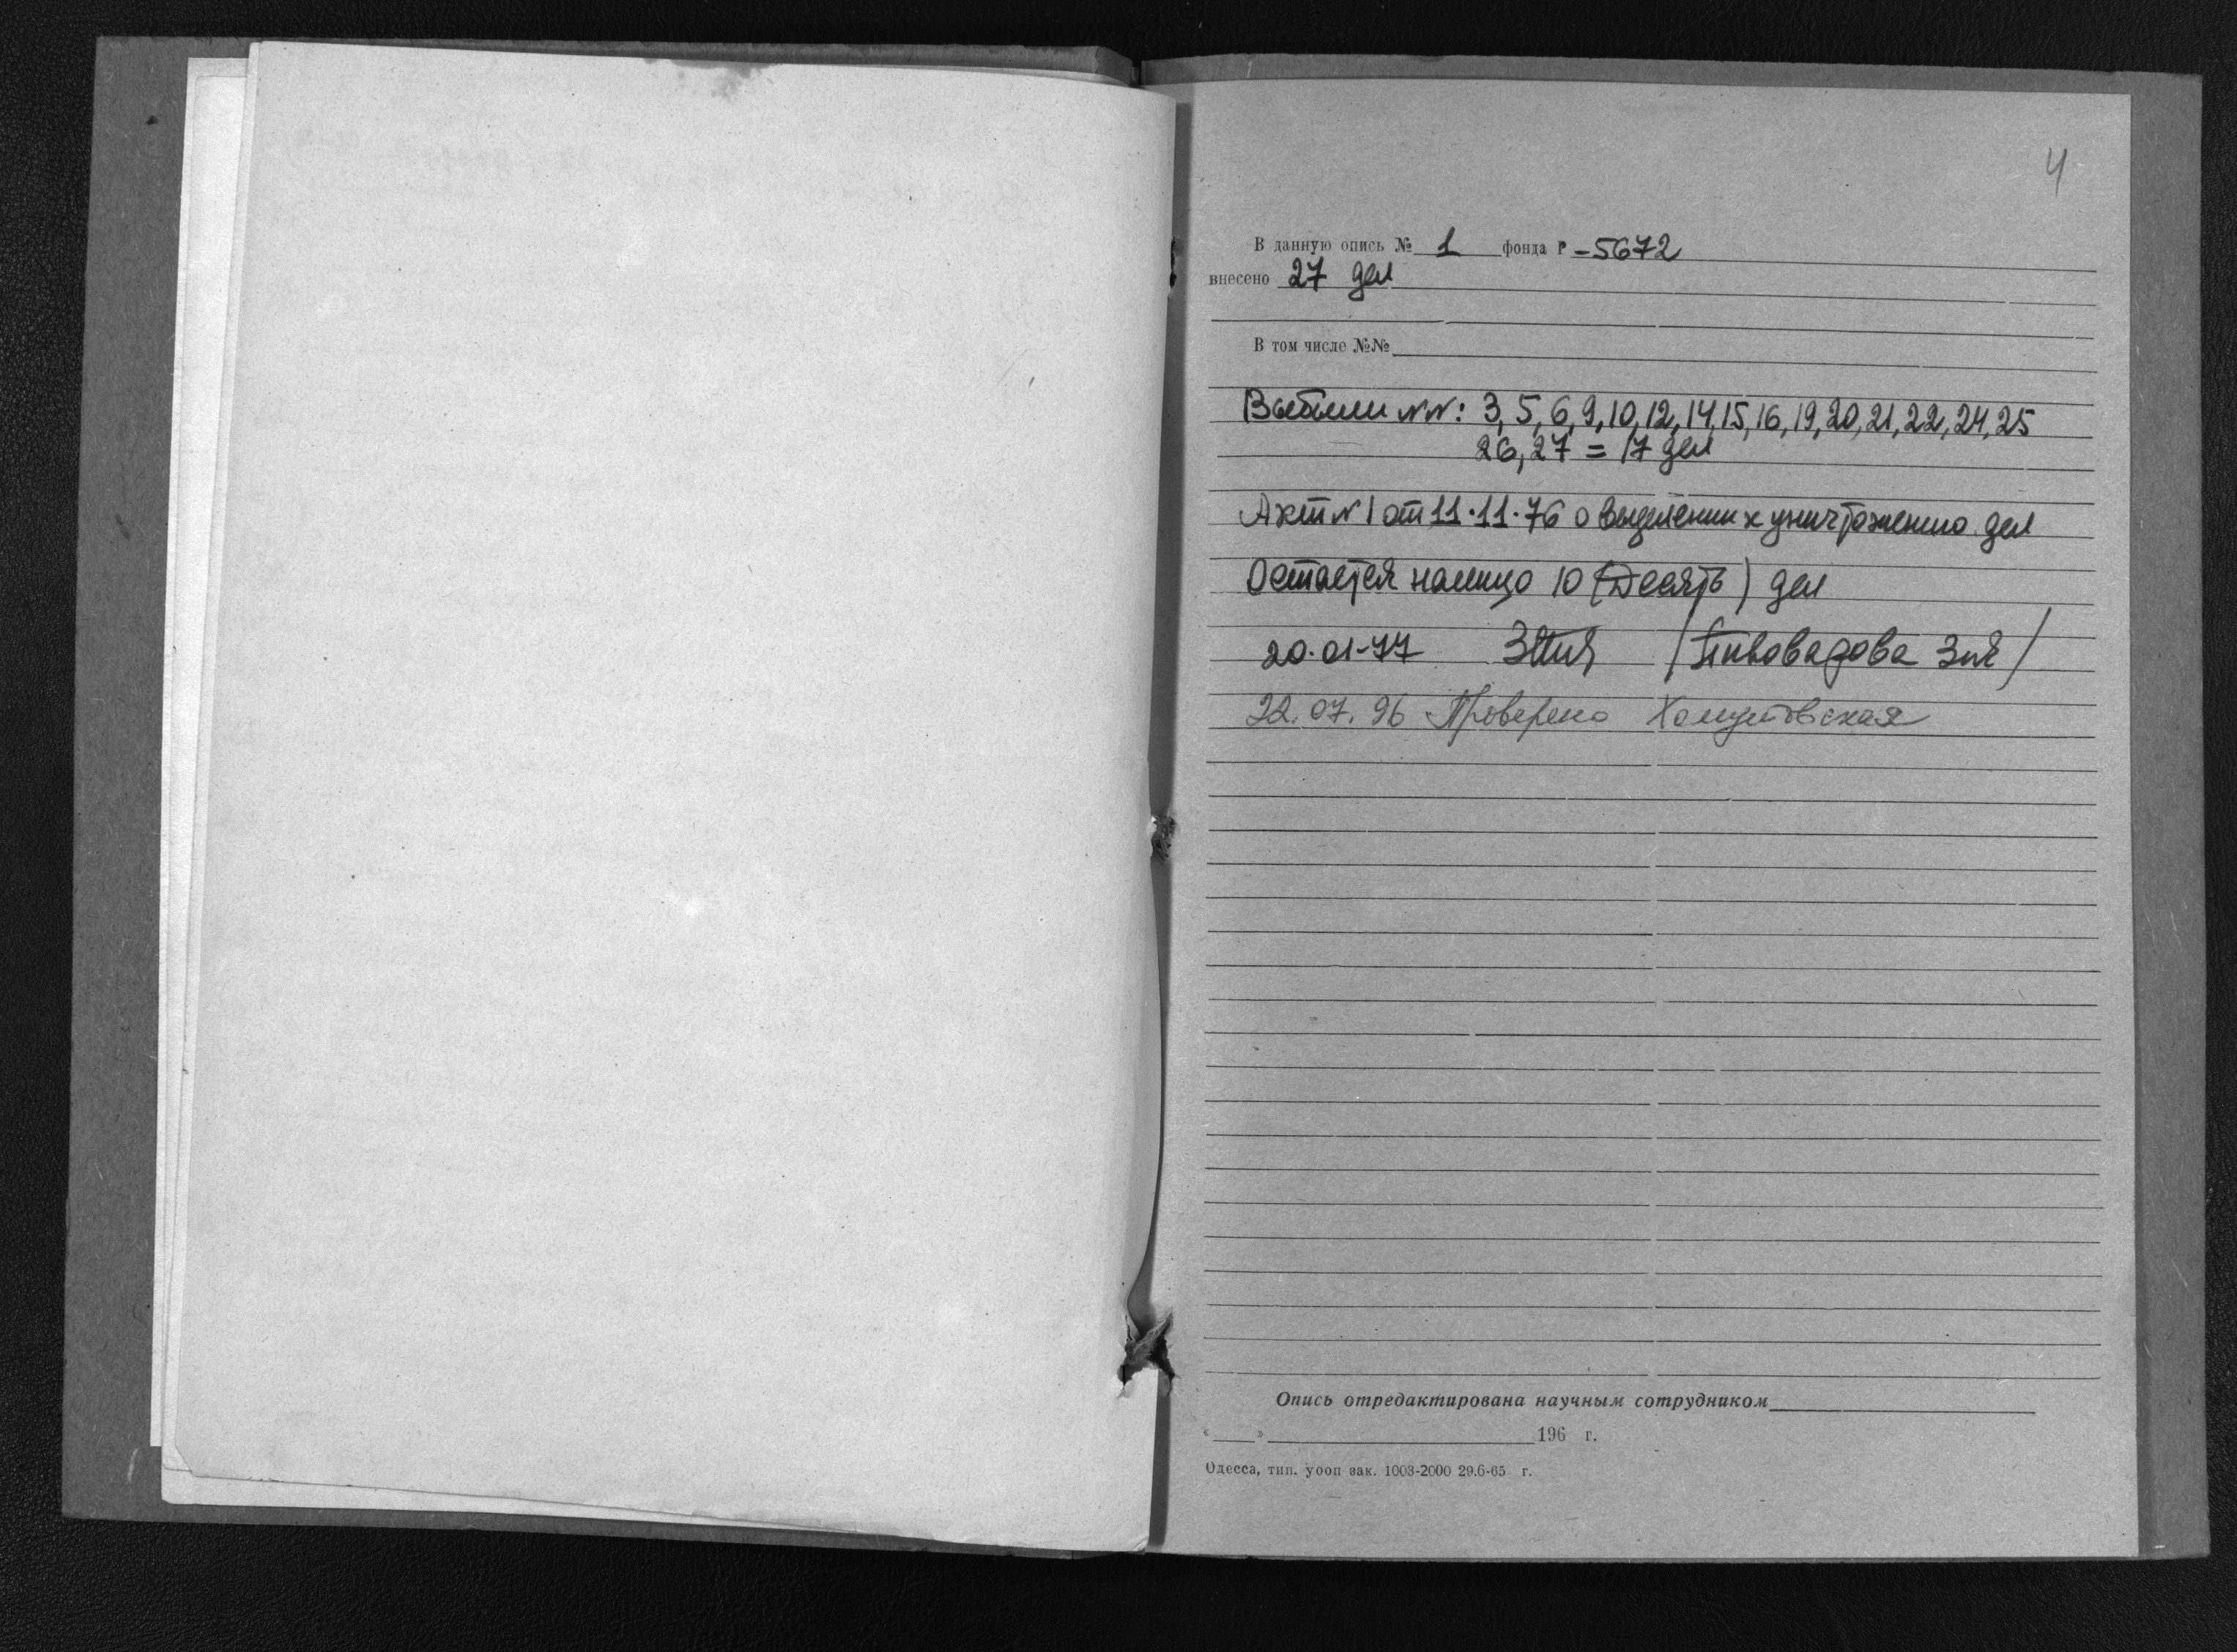 4
В данную опись № 1 фонда Р -5672
внесено 27 дел
В том числе №№
Выбыли NN: 3, 5, 6, 9, 10, 12, 14, 15, 16, 19, 20, 21, 22, 24, 25
26, 27 = 17 дел
Акт N 1 от 11.11.76 о выделении к уничтожению дел
Остается налицо 10 (Десять) дел
20.01-77 /Пивоварова
22.07.96 Проверено Хомутовская
Опись отредактирована научным сотрудником
« » 196 г.
Одесса, тип. уооп зак. 1003-2000 29.6-65 г.